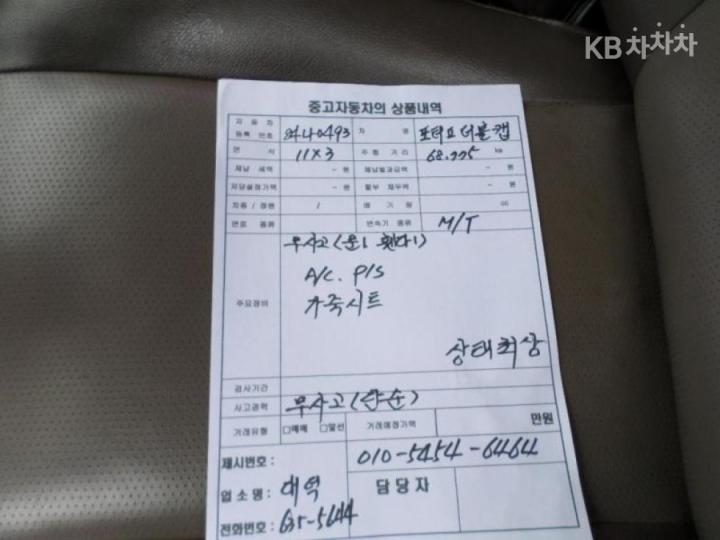 KB차차차
중고자동차의 상품내역
자동차 등록번호 차명 포터Ⅱ 더블캡
연식 11×3 주행거리 km
체납세액 -원 체납벌과금액 -원
저당설정가액 -원 할부채무액 -원
차종/정원 / 배기량 cc
연료종류 변속기종류 M/T
무사고
A/C. P/S
주요장비 가죽시트
상태최상
검사기간
사고경력 무사고
거래유형 □매매 □알선 거래예정가액 만원
제시번호: 010-5454-6464
업소명: 대역 담당자
전화번호: 635-5644